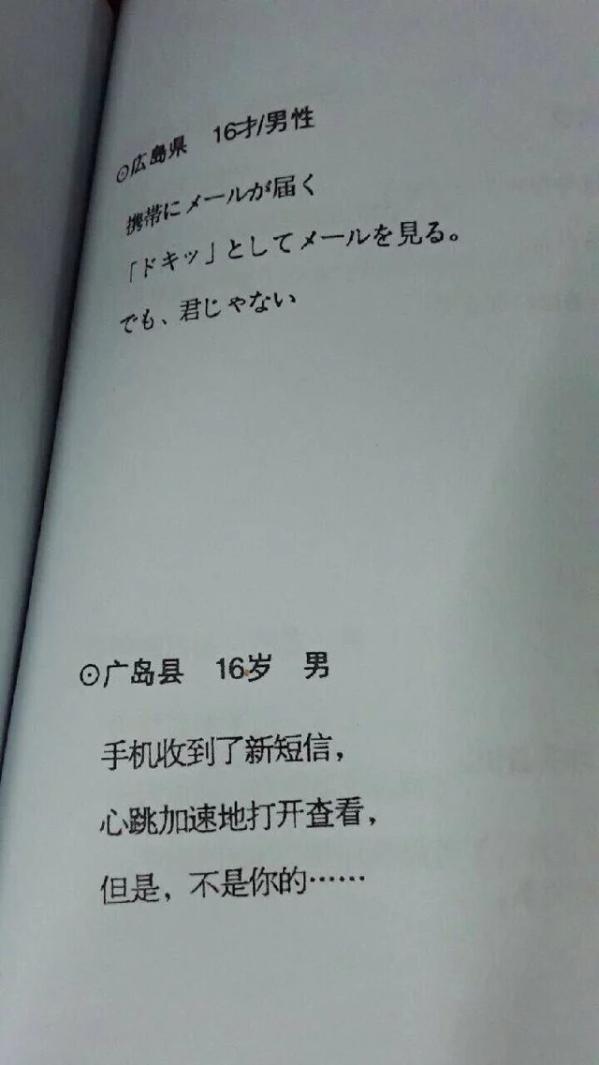 ⊙広島県　16才/男性
携帯にメールが届く
「ドキッ」としてメールを見る。
でも、君じゃない
⊙广岛县　16岁　男
手机收到了新短信，
心跳加速地打开查看，
但是，不是你的……